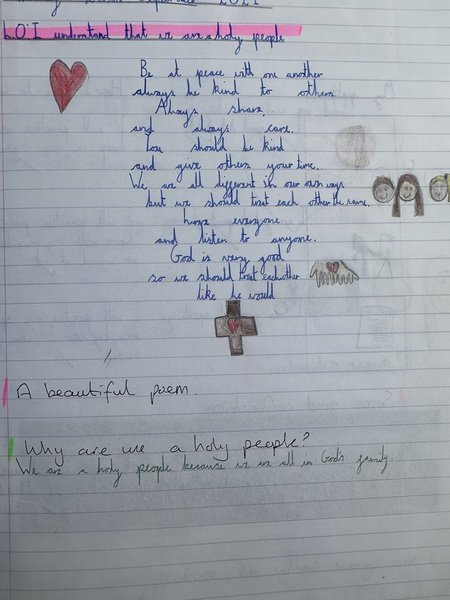 2021
L.O: I understand that we are a holy people
Be at peace with one another
always be kind to others.
Always share,
and always care.
You should be kind
and give others your time.
We are all different in our own ways
but we should treat each other the same.
love everyone
and listen to anyone.
God is very good
so we should treat eachother
like he would
A beautiful poem.
Why are we a holy people?
We are a holy people because we are all in God's family.